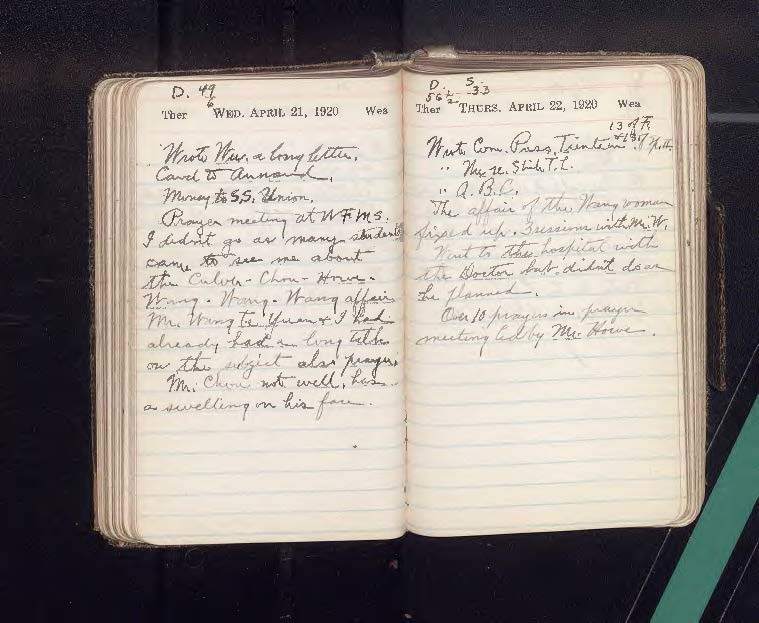 D. 49
6
Ther WED. APRIL 21, 1920 Wea
Wrote Wm. a long letter.
Card to
Money to S.S. Union.
Prayer meeting at W.F.M.S.
I didn't go as many students
came to see me about
the Culver-Chou-Howe-
Wang-Wang-Wang affair
Mr. Wang Yuan & I had
already had a long talk
on the subject also prayer.
Mr. Chou not well, has
a swelling on his face.
D. S.
56 1/2 33
Ther THURS. APRIL 22, 1920 Wea
13 of F.
Wrote Com. Press, Tientsin
" T.L.
" A.B.C.
The affair of the Wang woman
fixed up. 3 sessions with Mr. W.
Went to the hospital with
the Doctor but didn't do as
he planned.
Over 10 prayers in prayer
meeting led by Mr. Howe.